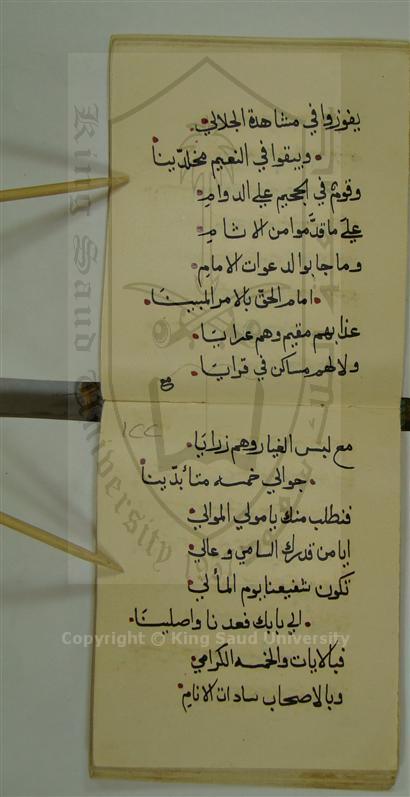 يفوزوا في مشاهدة الجلالي
ويبقوا في النعيم مخلدّينا
وقومٌ في الجحيم علي الدوامِ
عليَ ما قدَّموا من الاثامِ
وما جابوا لدعوات الامامِ
امام الحقّ بالامر المبينَا
عذابهم مقيم وهم عرايَا
ولا لهم مساكن في قرايَا
مع
١٢٢
مع لبس الغيار وهم زرايَا
جوالي خمسه متأبدّينا
فنطلب منك يا مولي الموالي
ايا من قدرك السامي وعالي
تكون شفيعنا يوم المألي
الي بابك فعدنا واصلينَا
فبالايات والخمسه الكرامي
وبالاصحاب سادات الانامِ
King Saud University
Copyright © King Saud University